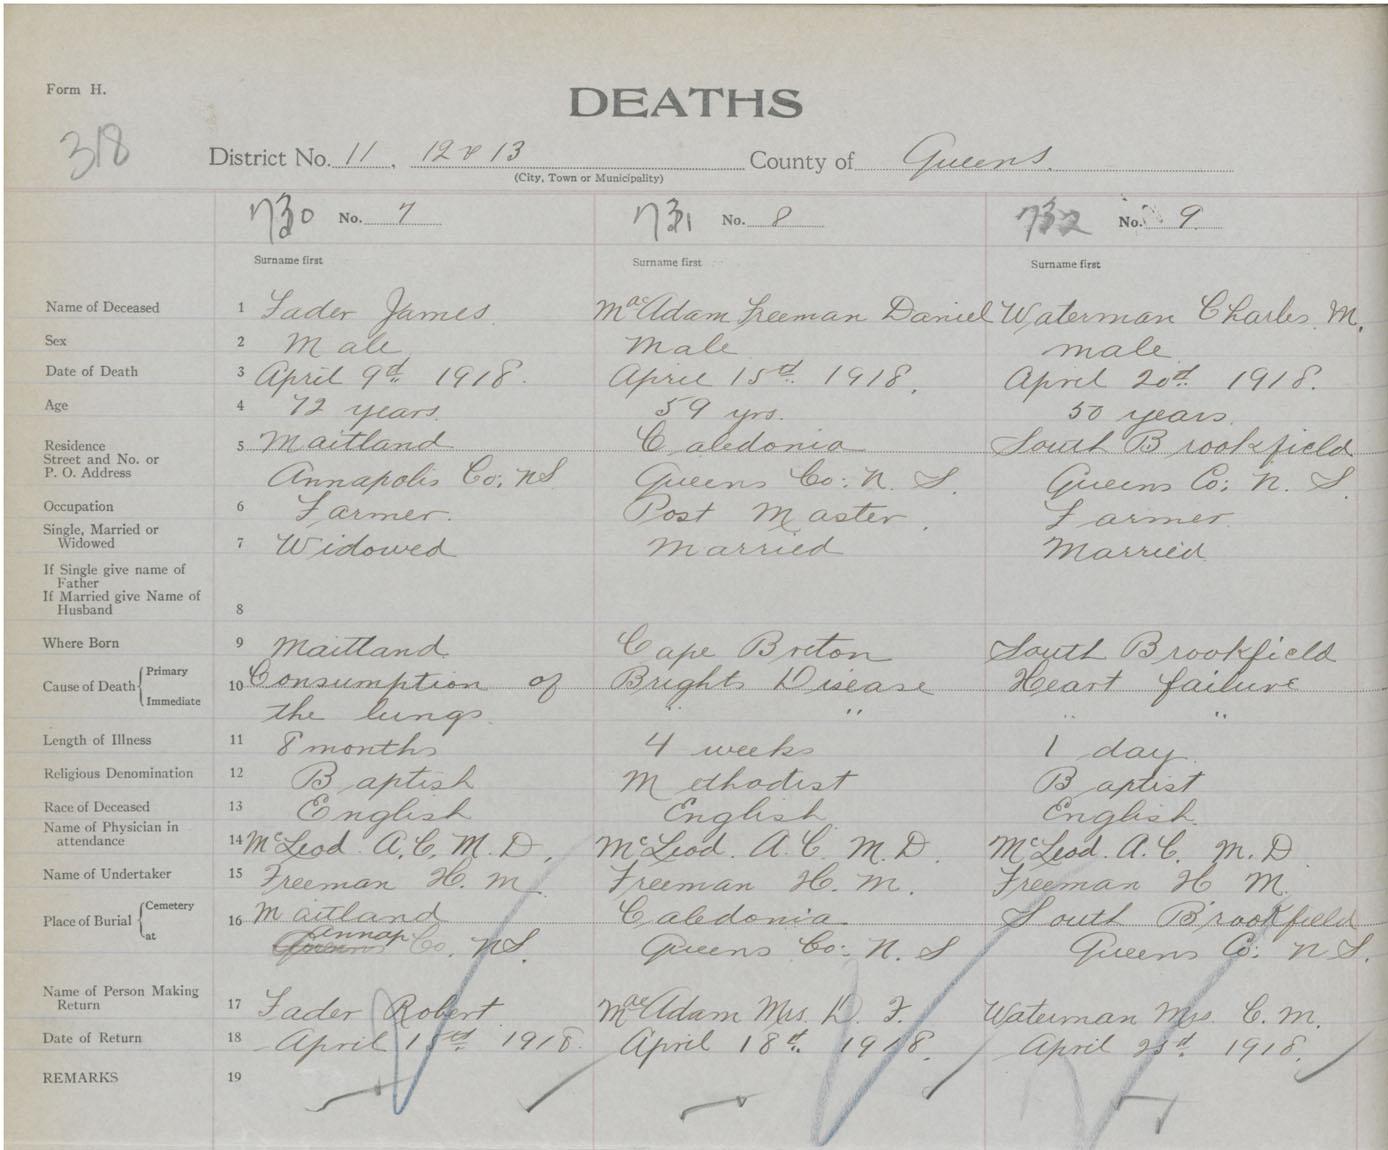 Form H.
DEATHS
318
District No. 11, 12 & 13 County of Queens.
(City, Town or Municipality)
730 No. 7 731 No. 8 732 No. 9
Surname first Surname first Surname first
Name of Deceased 1 Fader James. MacAdam Freeman Daniel Waterman Charles. M.
Sex 2 Male Male male
Date of Death 3 April 9d. 1918. April 15d. 1918. April 20d. 1918.
Age 4 72 years. 59 yrs. 50 years.
Residence 5 Maitland Caledonia South Brookfield
Street and No. or
P. O. Address Annapolis Co; NS Queens Co: N. S. Queens Co; N. S.
Occupation 6 Farmer. Post Master. Farmer.
Single, Married or
Widowed 7 Widowed Married Married
If Single give name of
Father
If Married give Name of
Husband 8
Where Born 9 Maitland. Cape Breton South Brookfield
Cause of Death Primary 10 Consumption of Brights Disease Heart failure
Immediate the lungs. " " " "
Length of Illness 11 8 months 4 weeks 1 day.
Religious Denomination 12 Baptish Methodist Baptist
Race of Deceased 13 English English English.
Name of Physician in
attendance 14 McLeod. A. C. M. D. McLeod. A. C. M. D. McLeod. A. C. M. D
Name of Undertaker 15 Freeman H. M. Freeman H. M. Freeman H M.
Place of Burial Cemetery 16 Maitland Caledonia South Brookfield
at Queens Annap Co. NS. Queens Co: N. S Queens Co; N S.
Name of Person Making
Return 17 Fader Robert MacAdam Mrs. D. F. Waterman Mrs. C. M.
Date of Return 18 April 15d. 1918. April 18d. 1918. April 23d. 1918.
REMARKS 19